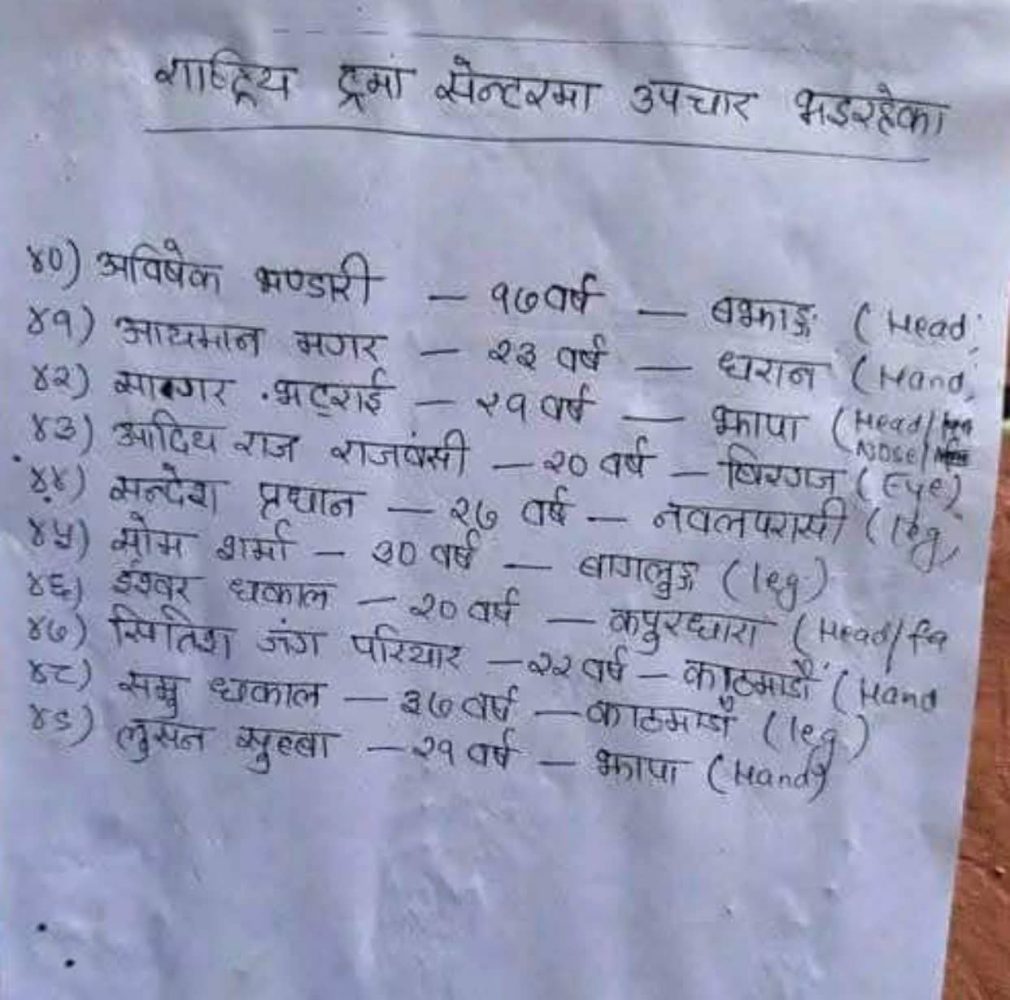 राष्ट्रिय ट्रमा सेन्टरमा उपचार भइरहेका
४०) अविषेक भण्डारी – १७ वर्ष – बझाङ (Head
४१) आयमान मगर – २३ वर्ष – धरान (Hand
४२) सागर भट्राई – २१ वर्ष – झापा (Head/ Nose/
४३) आदिय राज राजवंसी – २० वर्ष – बिरगज (Eye)
४४) सन्देश प्रधान – २७ वर्ष – नवलपरासी (leg
४५) सोम शर्मा – ३० वर्ष – बागलुङ (leg)
४६) ईश्वर धकाल – २० वर्ष – कपुरधारा (Head/fa
४७) सितिश जंग परियार – २२ वर्ष – काठमाडौं (Hand
४८) सम्रु धकाल – ३७ वर्ष – काठमाडौं (leg)
४९) लुसन सुहबा – २१ वर्ष – झापा (Hand)